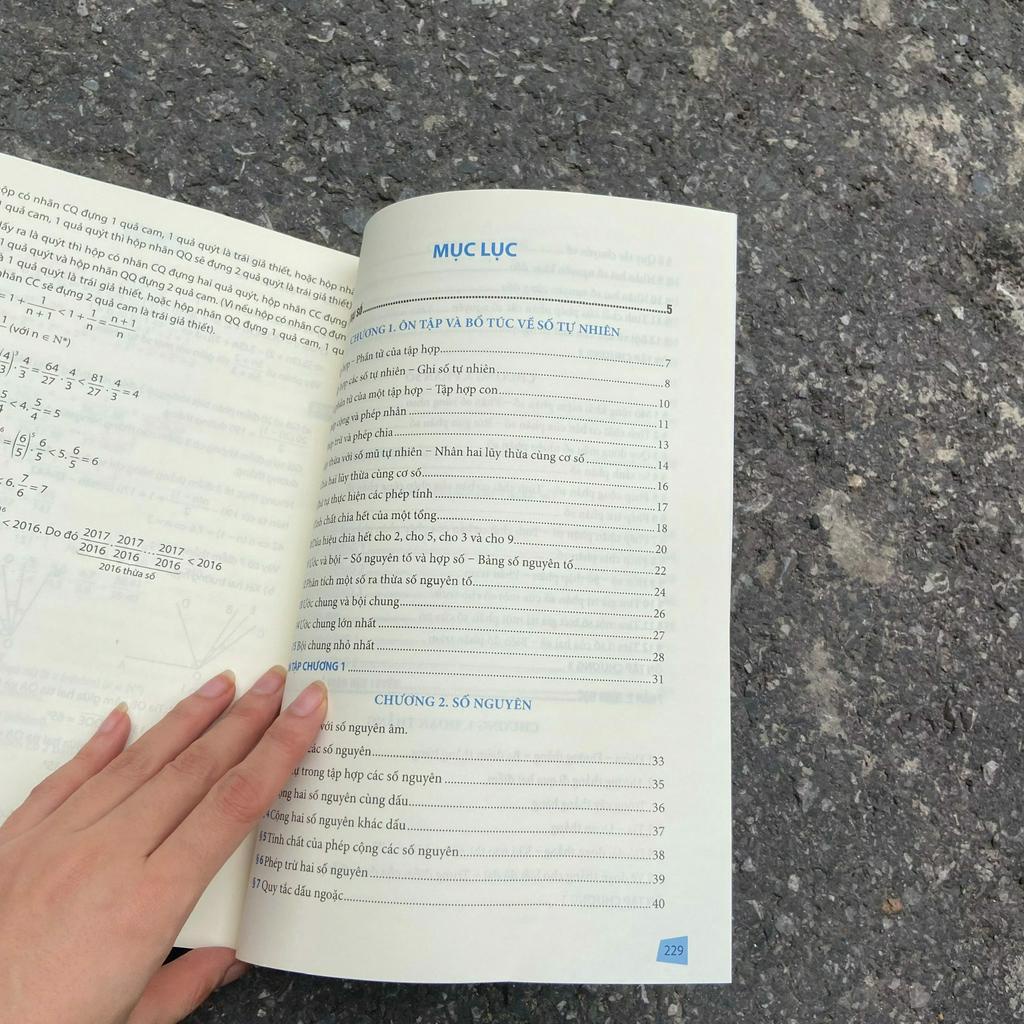 ộp có nhãn CQ đựng 1 quả cam, 1 quả quýt là trái giả thiết, hoặc hộp nhã
quả cam, 1 quả quýt thì hộp nhãn QQ sẽ đựng 2 quả quýt là trái giả thiết)
lấy ra là quýt thì hộp có nhãn CQ đựng hai quả quýt, hộp nhãn CC đựng
1 quả quýt và hộp nhãn QQ đựng 2 quả cam. (Vì nếu hộp có nhãn CQ đựn
à 1 quả quýt là trái giả thiết, hoặc hộp nhãn QQ đựng 1 quả cam, 1 qu
nhãn CC sẽ đựng 2 quả cam là trái giả thiết).
= 1 + 1/(n+1) < 1 + 1/n = (n+1)/n
(với n ∈ N*)
(4/3)³ · 4/3 = 64/27 · 4/3 < 81/27 · 4/3 = 4
< 4 · 5/4 = 5
= (6/5)⁵ · 6/5 < 5 · 6/5 = 6
< 6 · 7/6 = 7
< 2016. Do đó 2017/2016 · 2017/2016 ... 2017/2016 < 2016
2016 thừa số
MỤC LỤC
số 5
CHƯƠNG 1. ÔN TẬP VÀ BỔ TÚC VỀ SỐ TỰ NHIÊN
hợp – Phần tử của tập hợp 7
hợp các số tự nhiên – Ghi số tự nhiên 8
phần tử của một tập hợp – Tập hợp con 10
cộng và phép nhân 11
trừ và phép chia 13
thừa với số mũ tự nhiên – Nhân hai lũy thừa cùng cơ số 14
hai lũy thừa cùng cơ số 16
tự thực hiện các phép tính 17
chất chia hết của một tổng 18
Dấu hiệu chia hết cho 2, cho 5, cho 3 và cho 9 20
Ước và bội – Số nguyên tố và hợp số – Bảng số nguyên tố 22
Phân tích một số ra thừa số nguyên tố 24
Ước chung và bội chung 26
4 Ước chung lớn nhất 27
15 Bội chung nhỏ nhất 28
TẬP CHƯƠNG 1 31
CHƯƠNG 2. SỐ NGUYÊN
với số nguyên âm.
các số nguyên 33
tự trong tập hợp các số nguyên 35
ộng hai số nguyên cùng dấu 36
4 Cộng hai số nguyên khác dấu 37
§5 Tính chất của phép cộng các số nguyên 38
§6 Phép trừ hai số nguyên 39
§7 Quy tắc dấu ngoặc 40
229